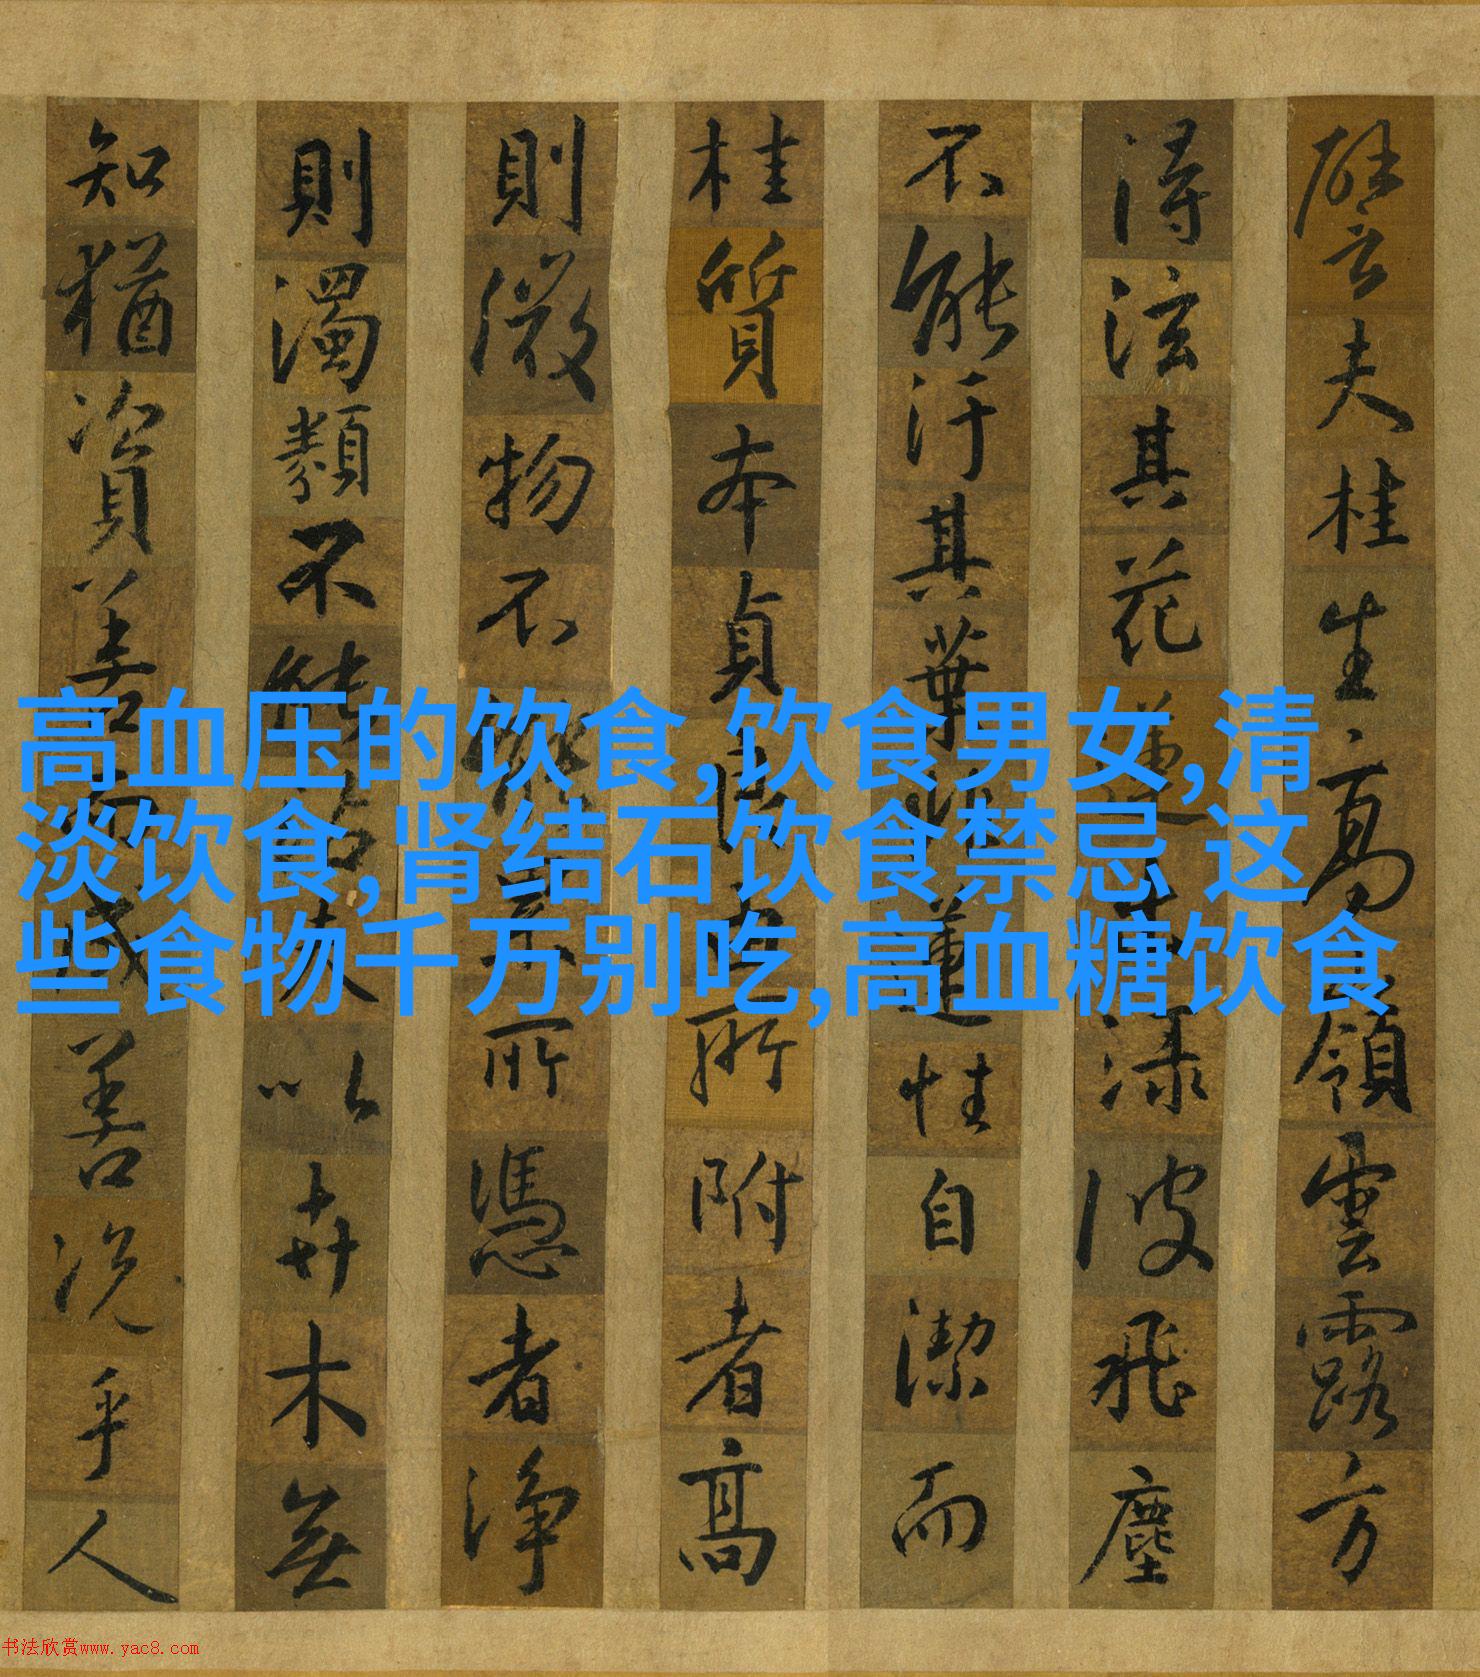 譬夫桂生高領雲露方
得泫其花蓮出淥波飛塵
不能汙其葉非蓮性自潔而
桂質本貞良由所附者高
則微物不能累所憑者淨
則濁類不能沾夫以卉木無
知猶資善而成善況乎人
高血压的饮食,饮食男女,清
淡饮食,肾结石饮食禁忌 这
些食物千万别吃,高血糖饮食
书法欣赏www.yac8.com